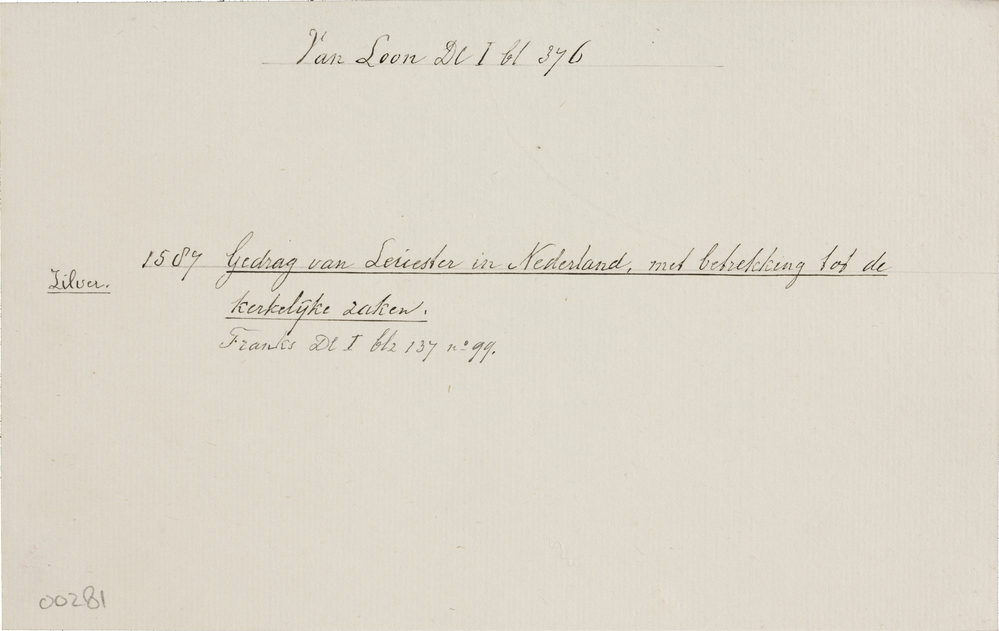 Van Loon Dl I bl 376
1587 Gedrag van Leicester in Nederland, met betrekking tot de
Zilver.
kerkelijke zaken.
Franks Dl I blz 137 nº 99.
00281